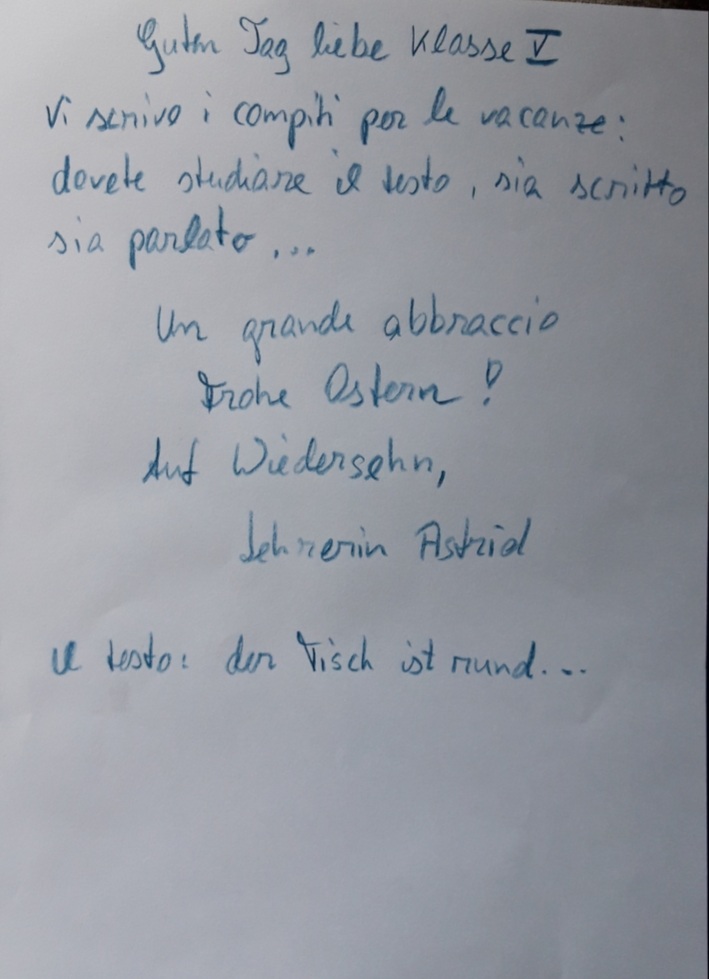 Guten Tag liebe Klasse V
Vi scrivo i compiti per le vacanze:
dovete studiare il testo, sia scritto
sia parlato...
Un grande abbraccio
Frohe Ostern!
Auf Wiedersehn,
Lehrerin Astrid
Il testo: der Tisch ist rund...